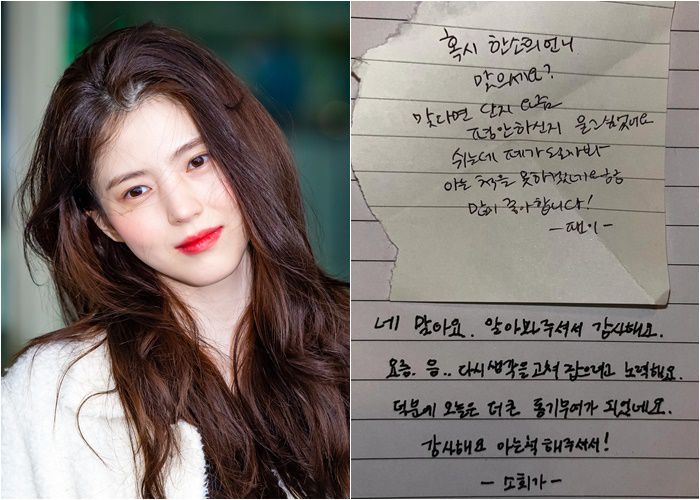 혹시 한소희언니
맞으세요?
맞다면 단지 요즘
평안하신지 묻고싶었어요
쉬는데 폐가될까봐
아는 척을 못하겠네요ㅎㅎ
많이 좋아합니다!
-팬이-
네 맞아요. 알아봐주셔서 감사해요.
요즘. 음.. 다시생각을고쳐 잡으려고 노력해요.
덕분에 오늘은 더큰 동기부여가 되었네요.
감사해요 아는척해주셔서!
- 소희가 -